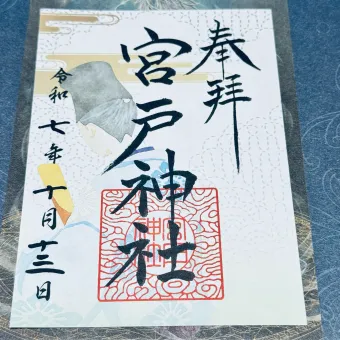 奉拝
宮戸神社
令和七年十月十三日